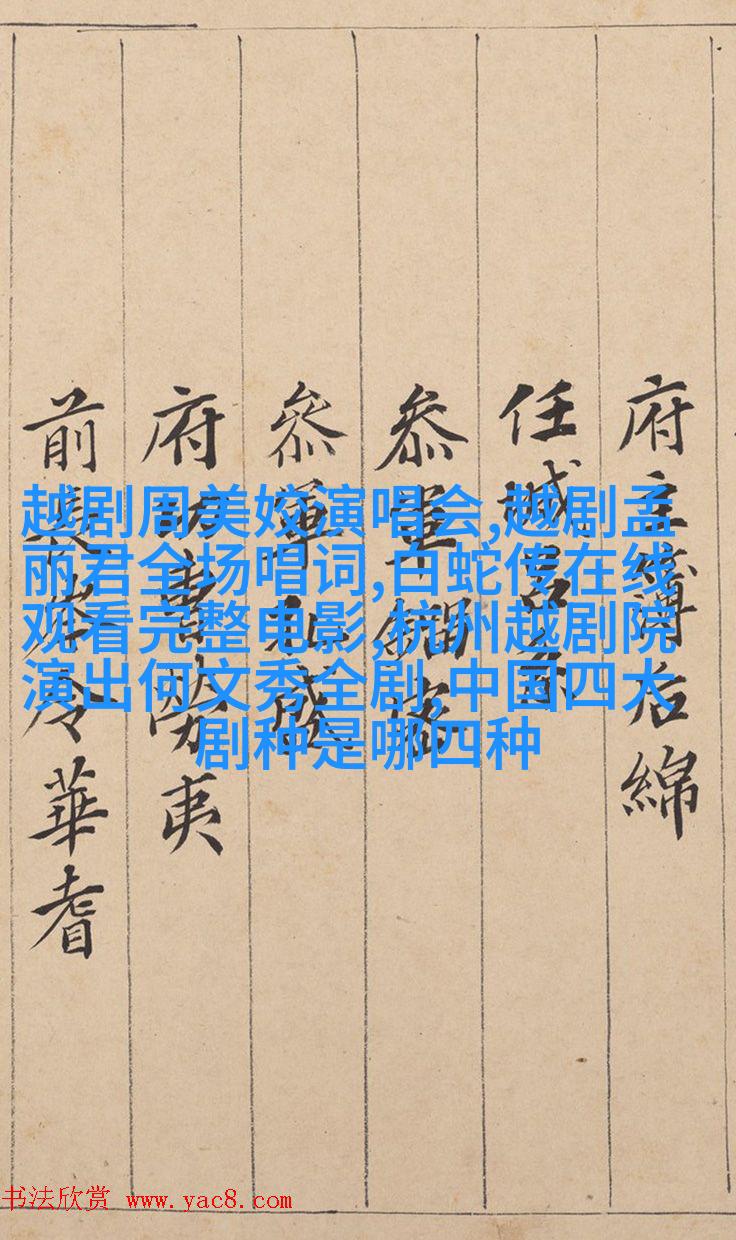 府主簿后綿
任城呂系
叅軍
叅軍孔盛
府功曹勞夷
前長岑令華耆
越剧周美姣演唱会,越剧孟
丽君全场唱词,白蛇传在线
观看完整电影,杭州越剧院
演出何文秀全剧,中国四大
剧种是哪四种
书法欣赏 www.yac8.com